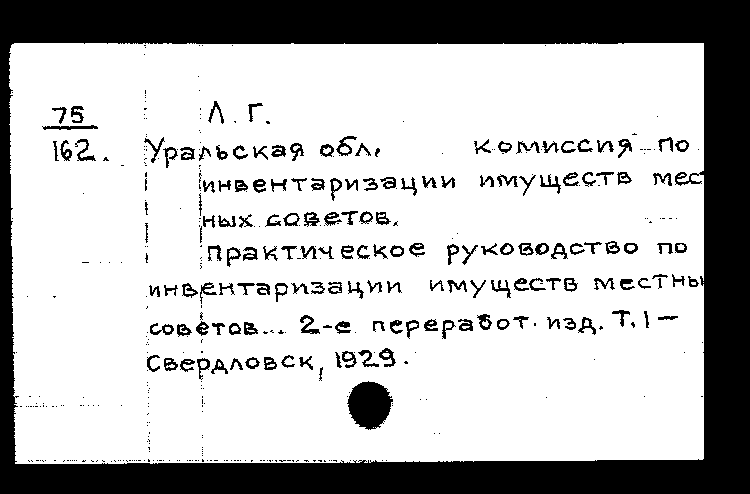 75 Л. Г.
162. Уральская обл. комиссия по
инвентаризации имуществ мес
ных советов.
Практическое руководство по
инвентаризации имуществ местны
советов... 2-е переработ. изд. Т. 1 —
Свердловск, 1929.